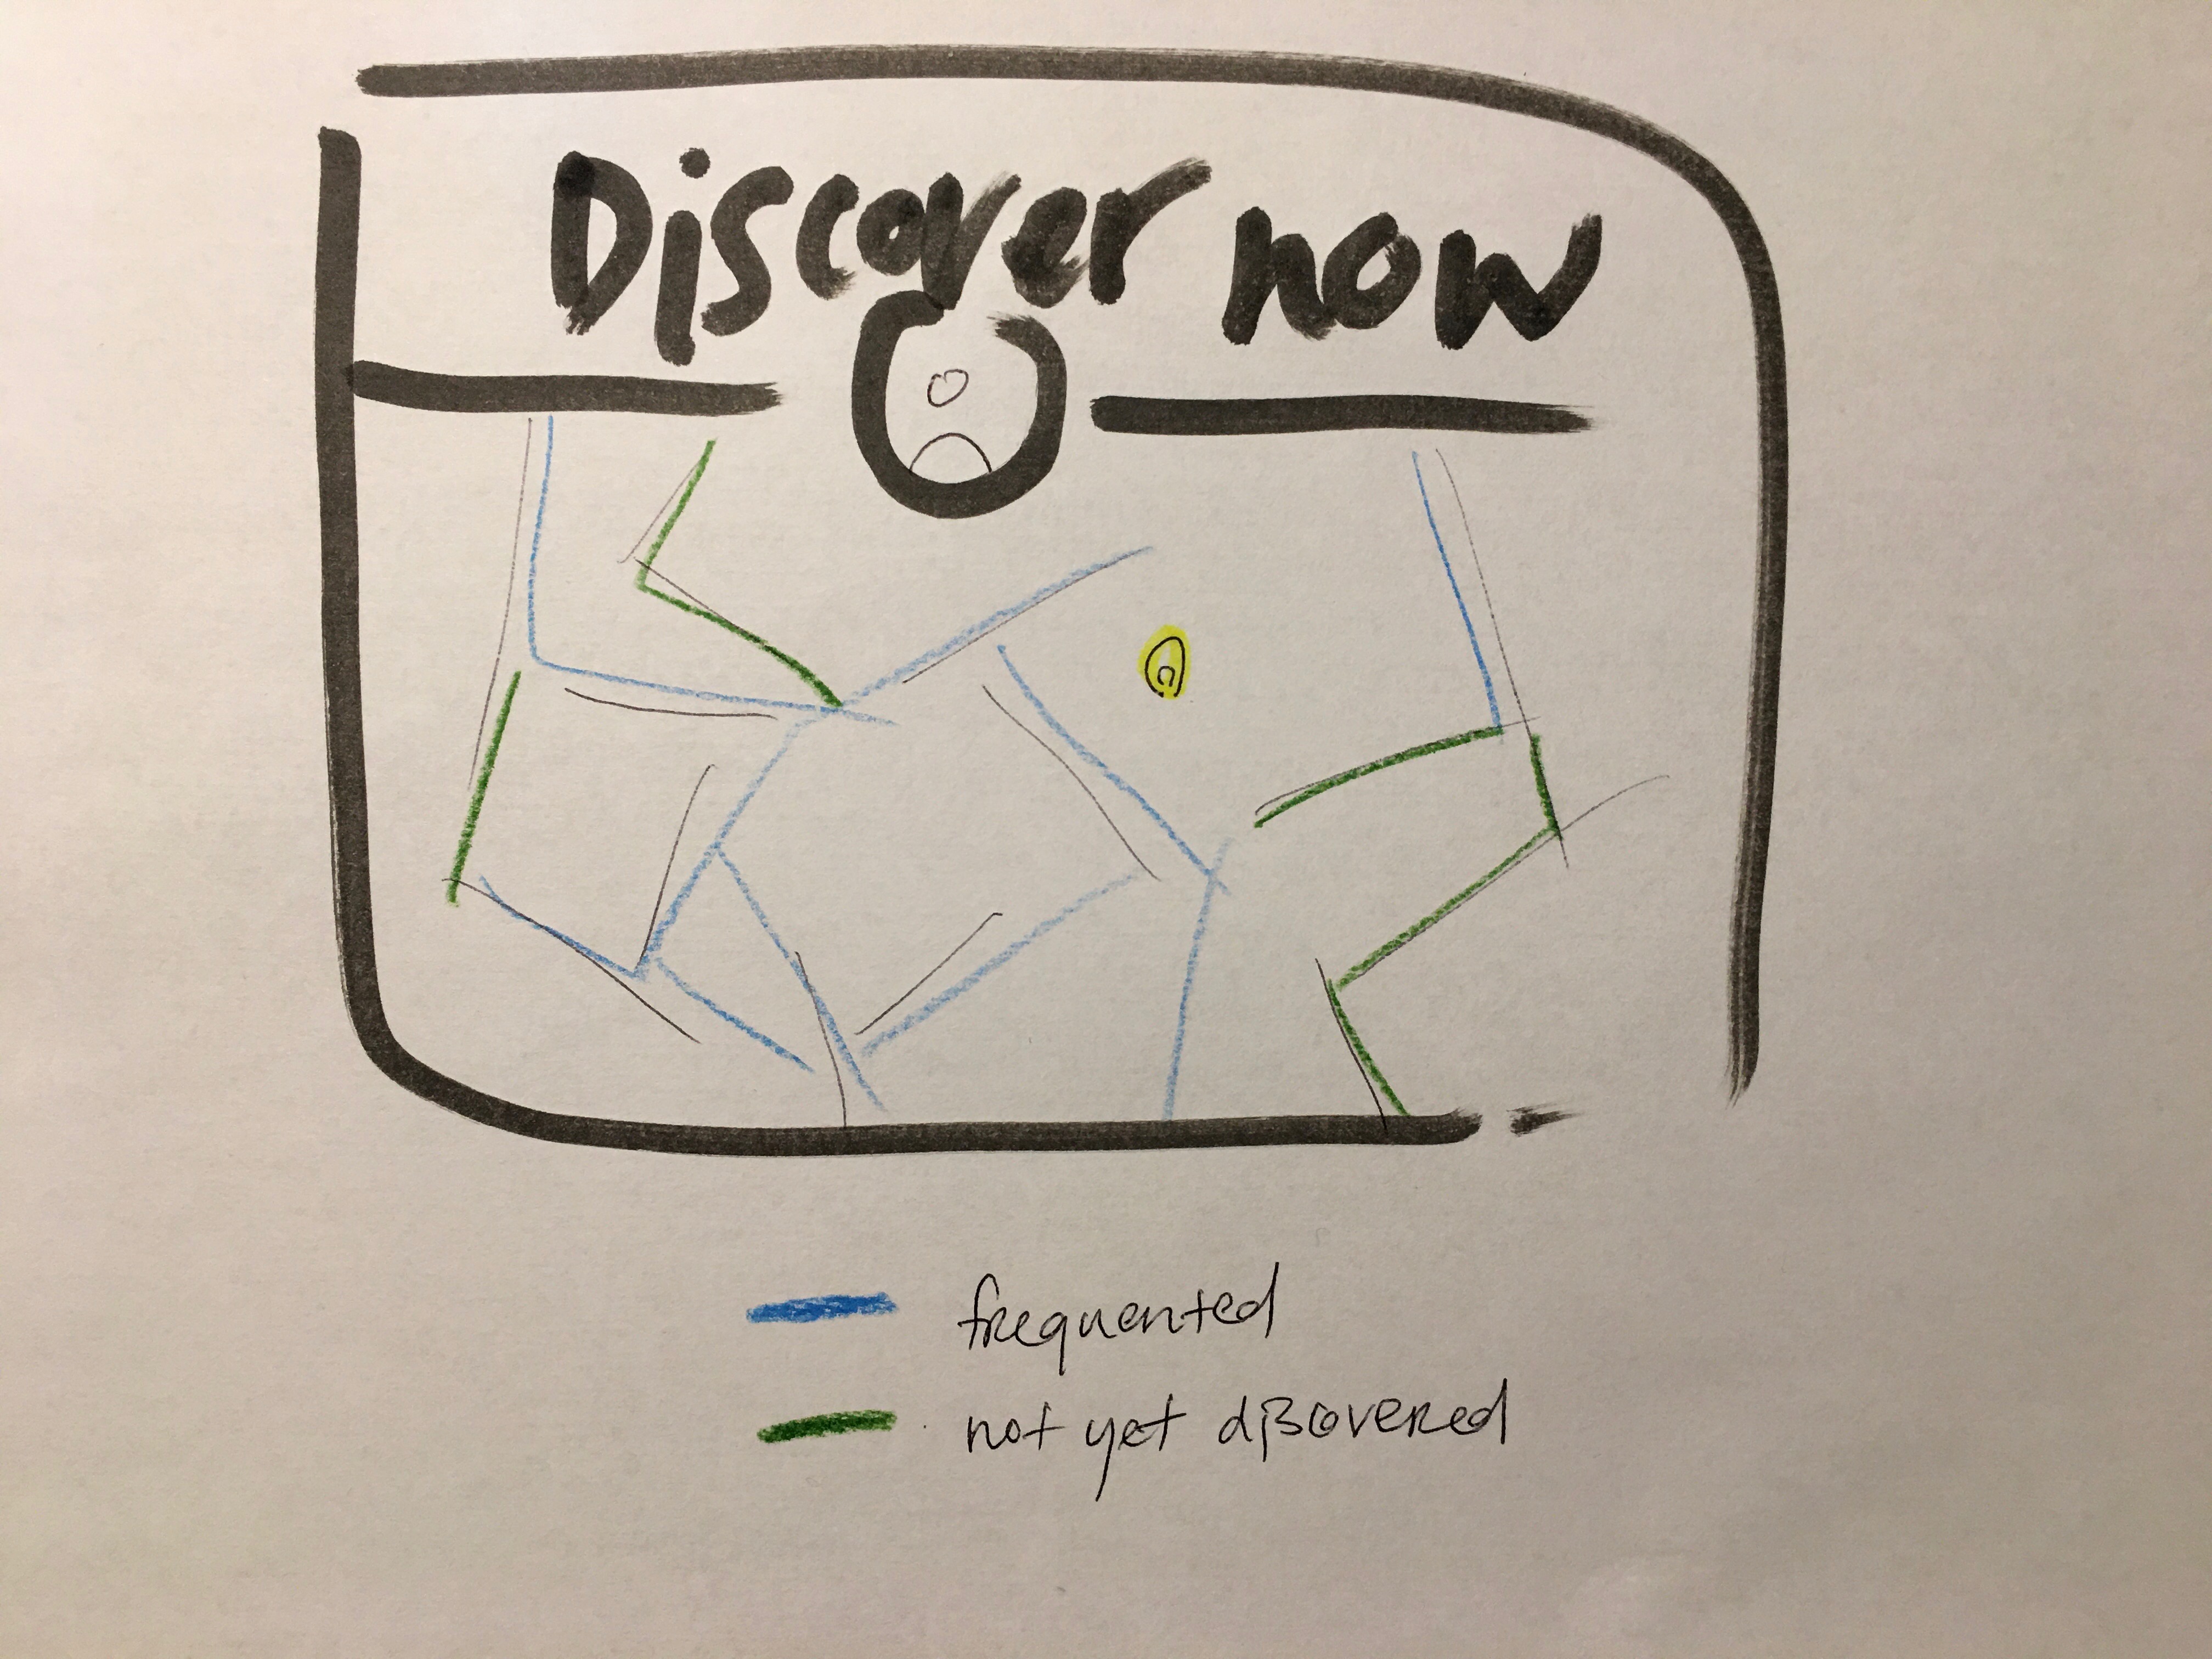 Discover now
frequented
not yet discovered